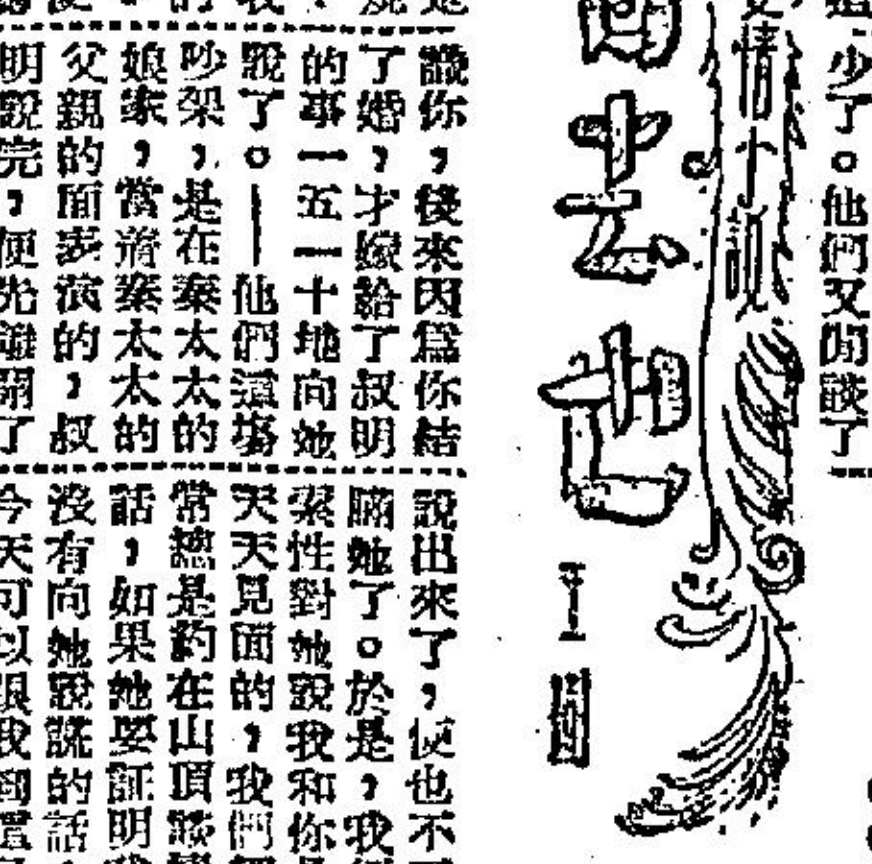 少了。他們又閒談了
情小說
去世
識你，後來因爲你結
了婚，才嫁給了叔明
的事一五一十地向她
說了。—他們這場
吵架，是在秦太太的
娘家，當着秦太太的
父親的面表演的，叔
明說完，便先離開了
說出來了，便也不
瞞她了。於是，我
索性對她說我和你
天天見面的，我們
常總是約在山頂談
話，如果她要証明
沒有向她說謊的話
今天可以跟我到這